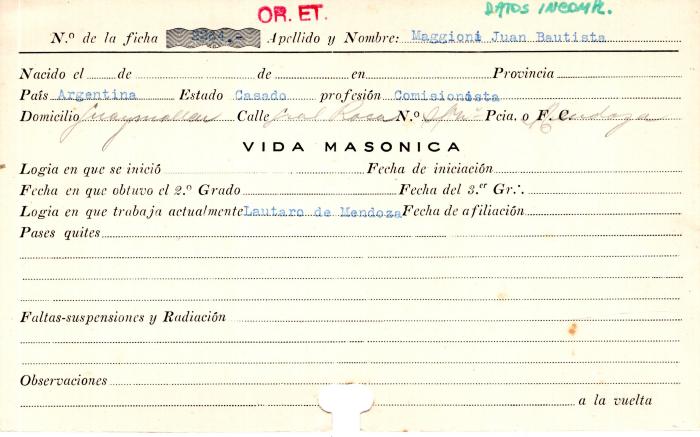 OR. ET. DATOS INCOMP.
N.º de la ficha Apellido y Nombre: Maggioni Juan Bautista
Nacido el de de en Provincia
País Argentina Estado Casado profesión Comisionista
Domicilio Guaymallen Calle Rosa N.º Pcia. o F. C. Mendoza
VIDA MASONICA
Logia en que se inició Fecha de iniciación
Fecha en que obtuvo el 2.º Grado Fecha del 3.er Gr∴
Logia en que trabaja actualmente Lautaro de Mendoza Fecha de afiliación
Pases quites
Faltas-suspensiones y Radiación
Observaciones
a la vuelta